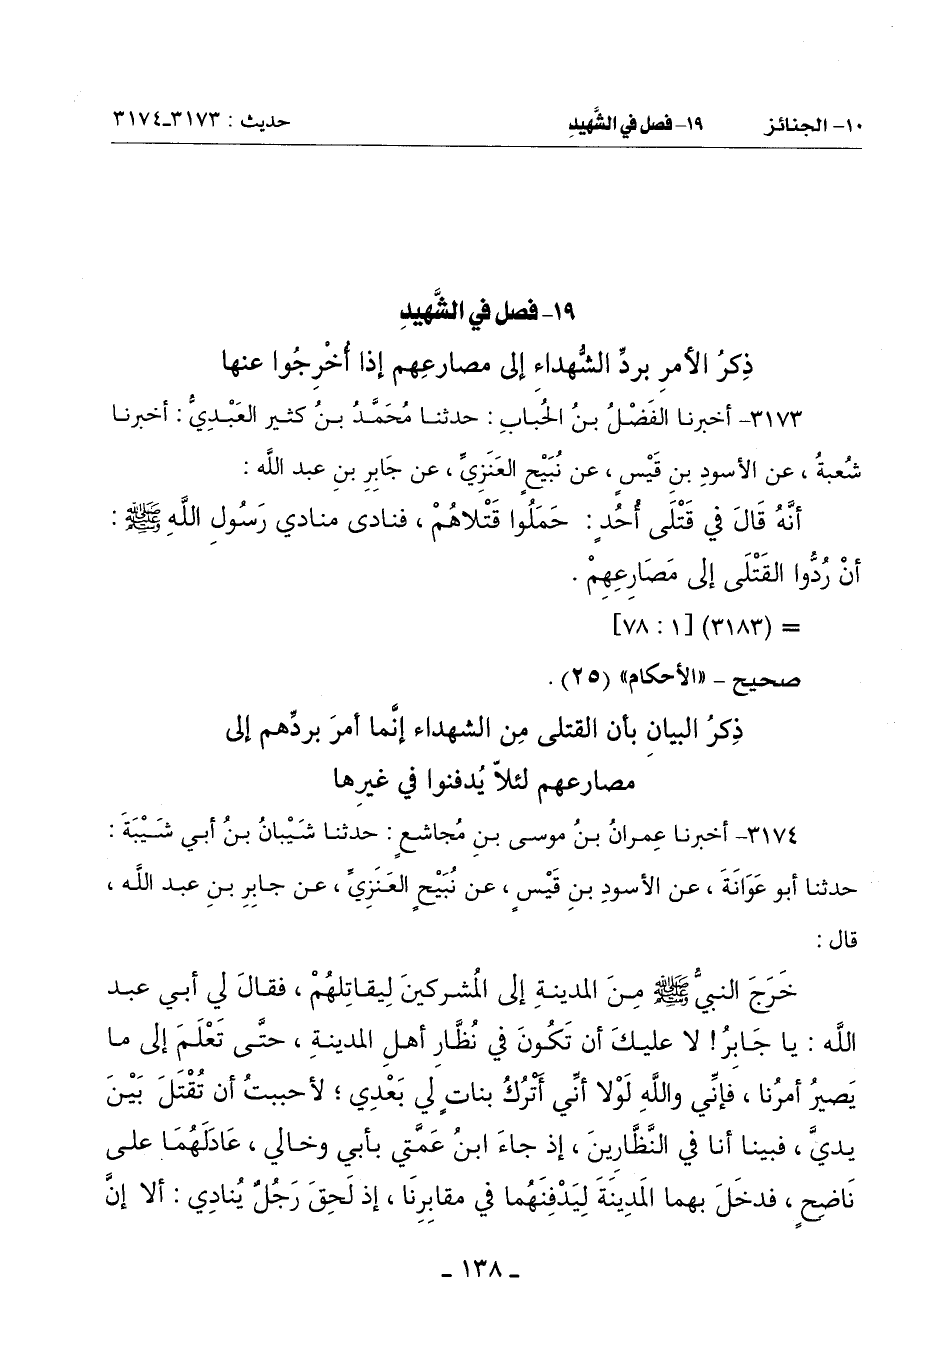 ١٠- الجنائز ١٩- فصل في الشَّهيدِ حديث : ٣١٧٣-٣١٧٤
١٩- فصل في الشَّهيدِ
ذِكرُ الأمرِ بردِّ الشُّهداء إلى مصارعِهم إذا أُخْرِجُوا عنها
٣١٧٣- أخبرنا الفَضْلُ بنُ الحُبابِ : حدثنا مُحَمَّدُ بنُ كثير العَبْديُّ : أخبرنا
شُعبةُ ، عن الأسودِ بنِ قَيْسٍ ، عن نُبَيْحٍ العَنَزِيِّ ، عن جَابِرِ بنِ عبد الله :
أنَّهُ قَالَ في قَتْلَى أُحُدٍ : حَمَلُوا قَتْلاهُمْ ، فنادى منادي رَسُولِ اللَّهِ ﷺ :
أنْ رُدُّوا القَتْلَى إلى مَصَارِعِهِمْ .
= (٣١٨٣) [١ : ٧٨]
صحيح - «الأحكام» (٢٥) .
ذِكرُ البيانِ بأن القتلى مِن الشهداء إنَّما أمرَ بردِّهم إلى
مصارعهم لئلاّ يُدفنوا في غيرِها
٣١٧٤- أخبرنا عِمرانُ بنُ موسى بنِ مُجاشعٍ : حدثنا شَيْبانُ بنُ أبي شَيْبَةَ :
حدثنا أبو عَوَانَةَ ، عن الأسودِ بنِ قَيْسٍ ، عن نُبَيْحٍ العَنَزِيِّ ، عن جابرِ بنِ عبد الله ،
قال :
خَرَجَ النبيُّ ﷺ مِنَ المدينةِ إلى المُشركينَ لِيقاتِلهُمْ ، فقالَ لي أبي عبد
الله : يا جَابِرُ! لا عليكَ أن تَكُونَ في نُظَّارِ أهلِ المدينةِ ، حتَّى تَعْلَمَ إلى ما
يَصيرُ أمرُنا ، فإنِّي واللَّهِ لَوْلا أنِّي أَتْرُكُ بناتٍ لي بَعْدِي ؛ لأحببتُ أن تُقْتَلَ بَيْنَ
يديَّ ، فبينا أنا في النَّظَّارينَ ، إذ جاءَ ابنُ عَمَّتي بأبي وخالي ، عَادَلَهُمَا على
نَاضِحٍ ، فدخَلَ بهما المَدِينَةَ لِيَدْفِنَهُما في مقابرِنَا ، إذ لَحِقَ رَجُلٌ يُنادِي : ألا إنَّ
- ١٣٨ -